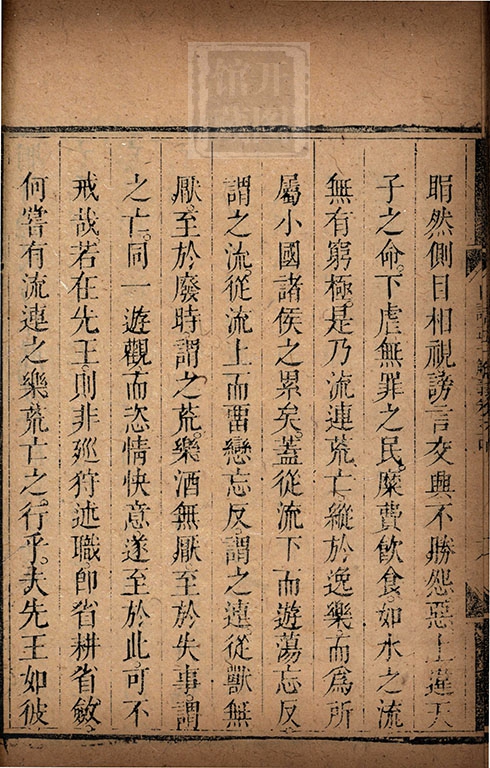 睊然側目相視謗言交興不勝怨惡上違天
子之命下虐無罪之民糜費飲食如水之流
無有窮極是乃流連荒亡縱於逸樂而爲所
屬小國諸侯之累矣蓋從流下而遊蕩忘反
謂之流從流上而畱戀忘反謂之連從獸無
厭至於廢時謂之荒樂酒無厭至於失事謂
之亡同一遊觀而恣情快意遂至於此可不
戒哉若在先王則非廵狩述職卽省耕省斂
何嘗有流連之樂荒亡之行乎夫先王如彼